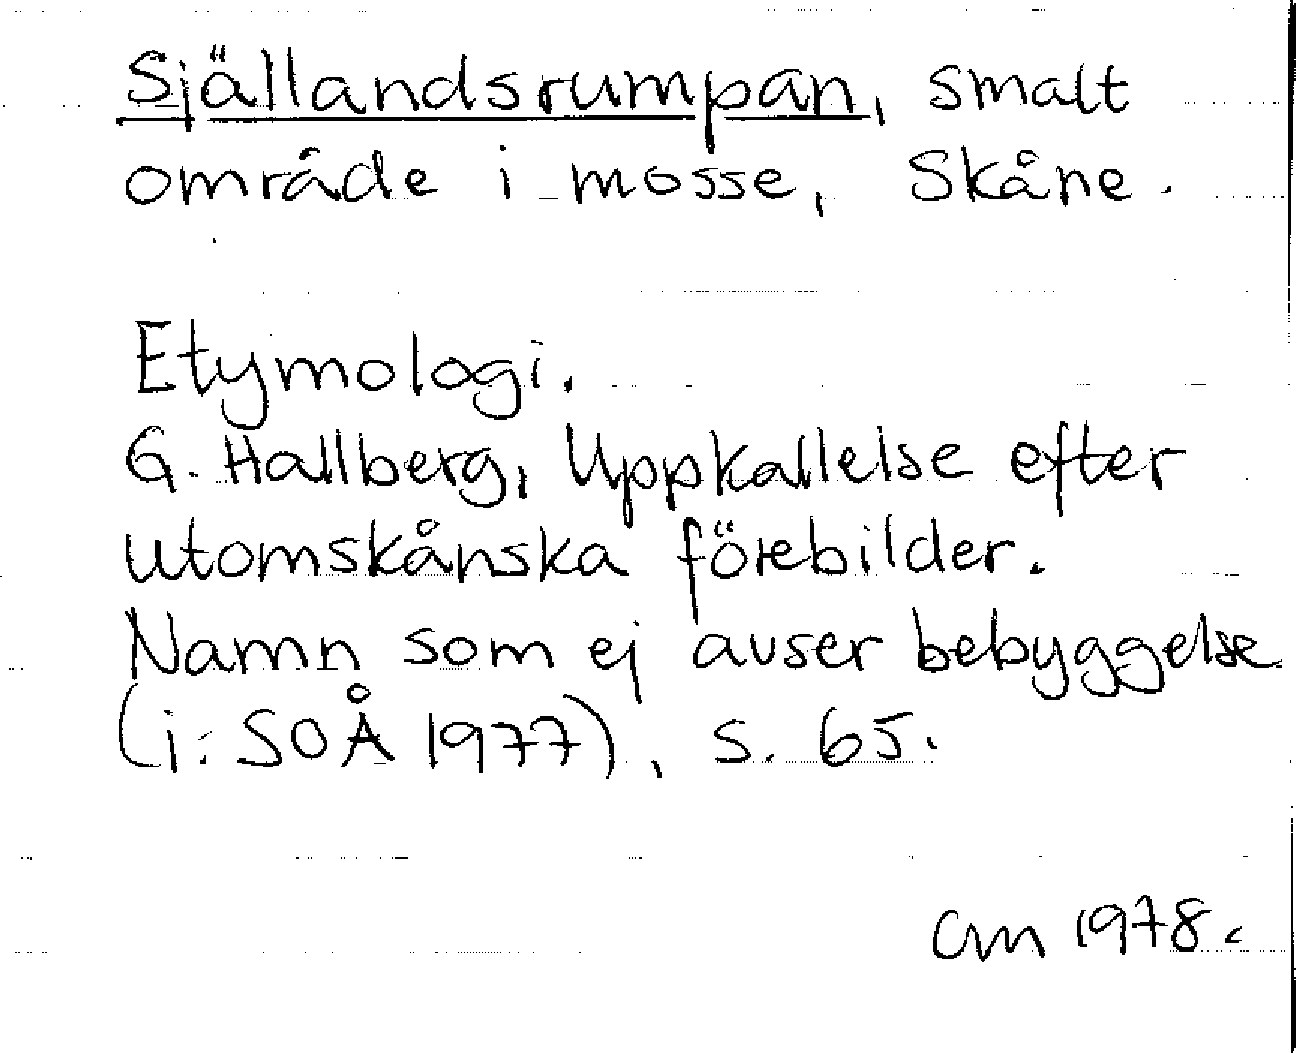 Själlandsrumpan, smalt
område i mosse, Skåne.
Etymologi.
G. Hallberg, Uppkallelse efter
utomskånska förebilder.
Namn som ej avser bebyggelse
(i: SOÅ 1977), s. 65.
CM 1978.